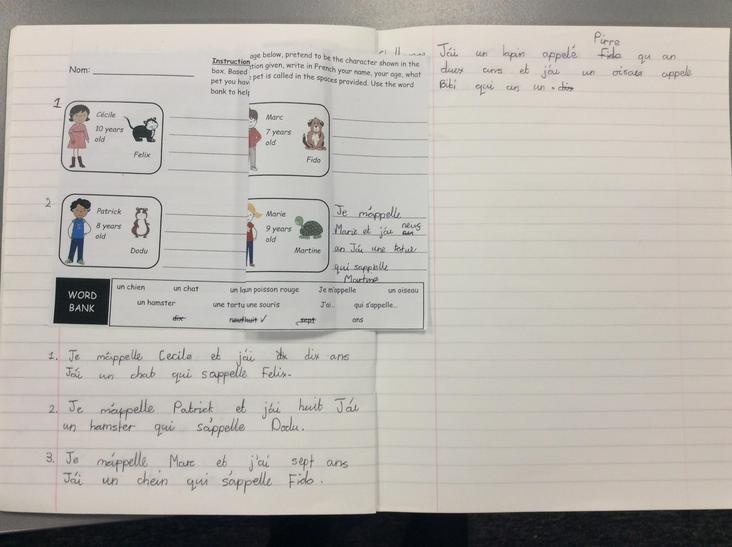 Nom:
Instruction
box. Based
pet you hav
bank to help
age below, pretend to be the character shown in the
tion given, write in French your name, your age, what
pet is called in the spaces provided. Use the word
1
Cécile
10 years
old
Felix
Marc
7 years
old
Fido
2
Patrick
8 years
old
Dodu
Marie
9 years
old
Martine
Je m'appelle
Marie et j'ai neus
an J'ai une totue
qui s'appelle
Martine
WORD
BANK
un chien un chat un lapin poisson rouge Je m'appelle un oiseau
un hamster une tortu une souris J'ai... qui s'appelle...
dix neuf huit ✓ sept ans
1. Je m'appelle Cecile et j'ai dix ans
J'ai un chat qui s'appelle Felix.
2. Je m'appelle Patrick et j'ai huit J'ai
un hamster qui s'appelle Dodu.
3. Je m'appelle Marc et j'ai sept ans
J'ai un chein qui s'appelle Fido.
Pirre
J'ai un lapin appelé Fido qu an
duex ans et j'ai un oisais appele
Bibi qui an un dix